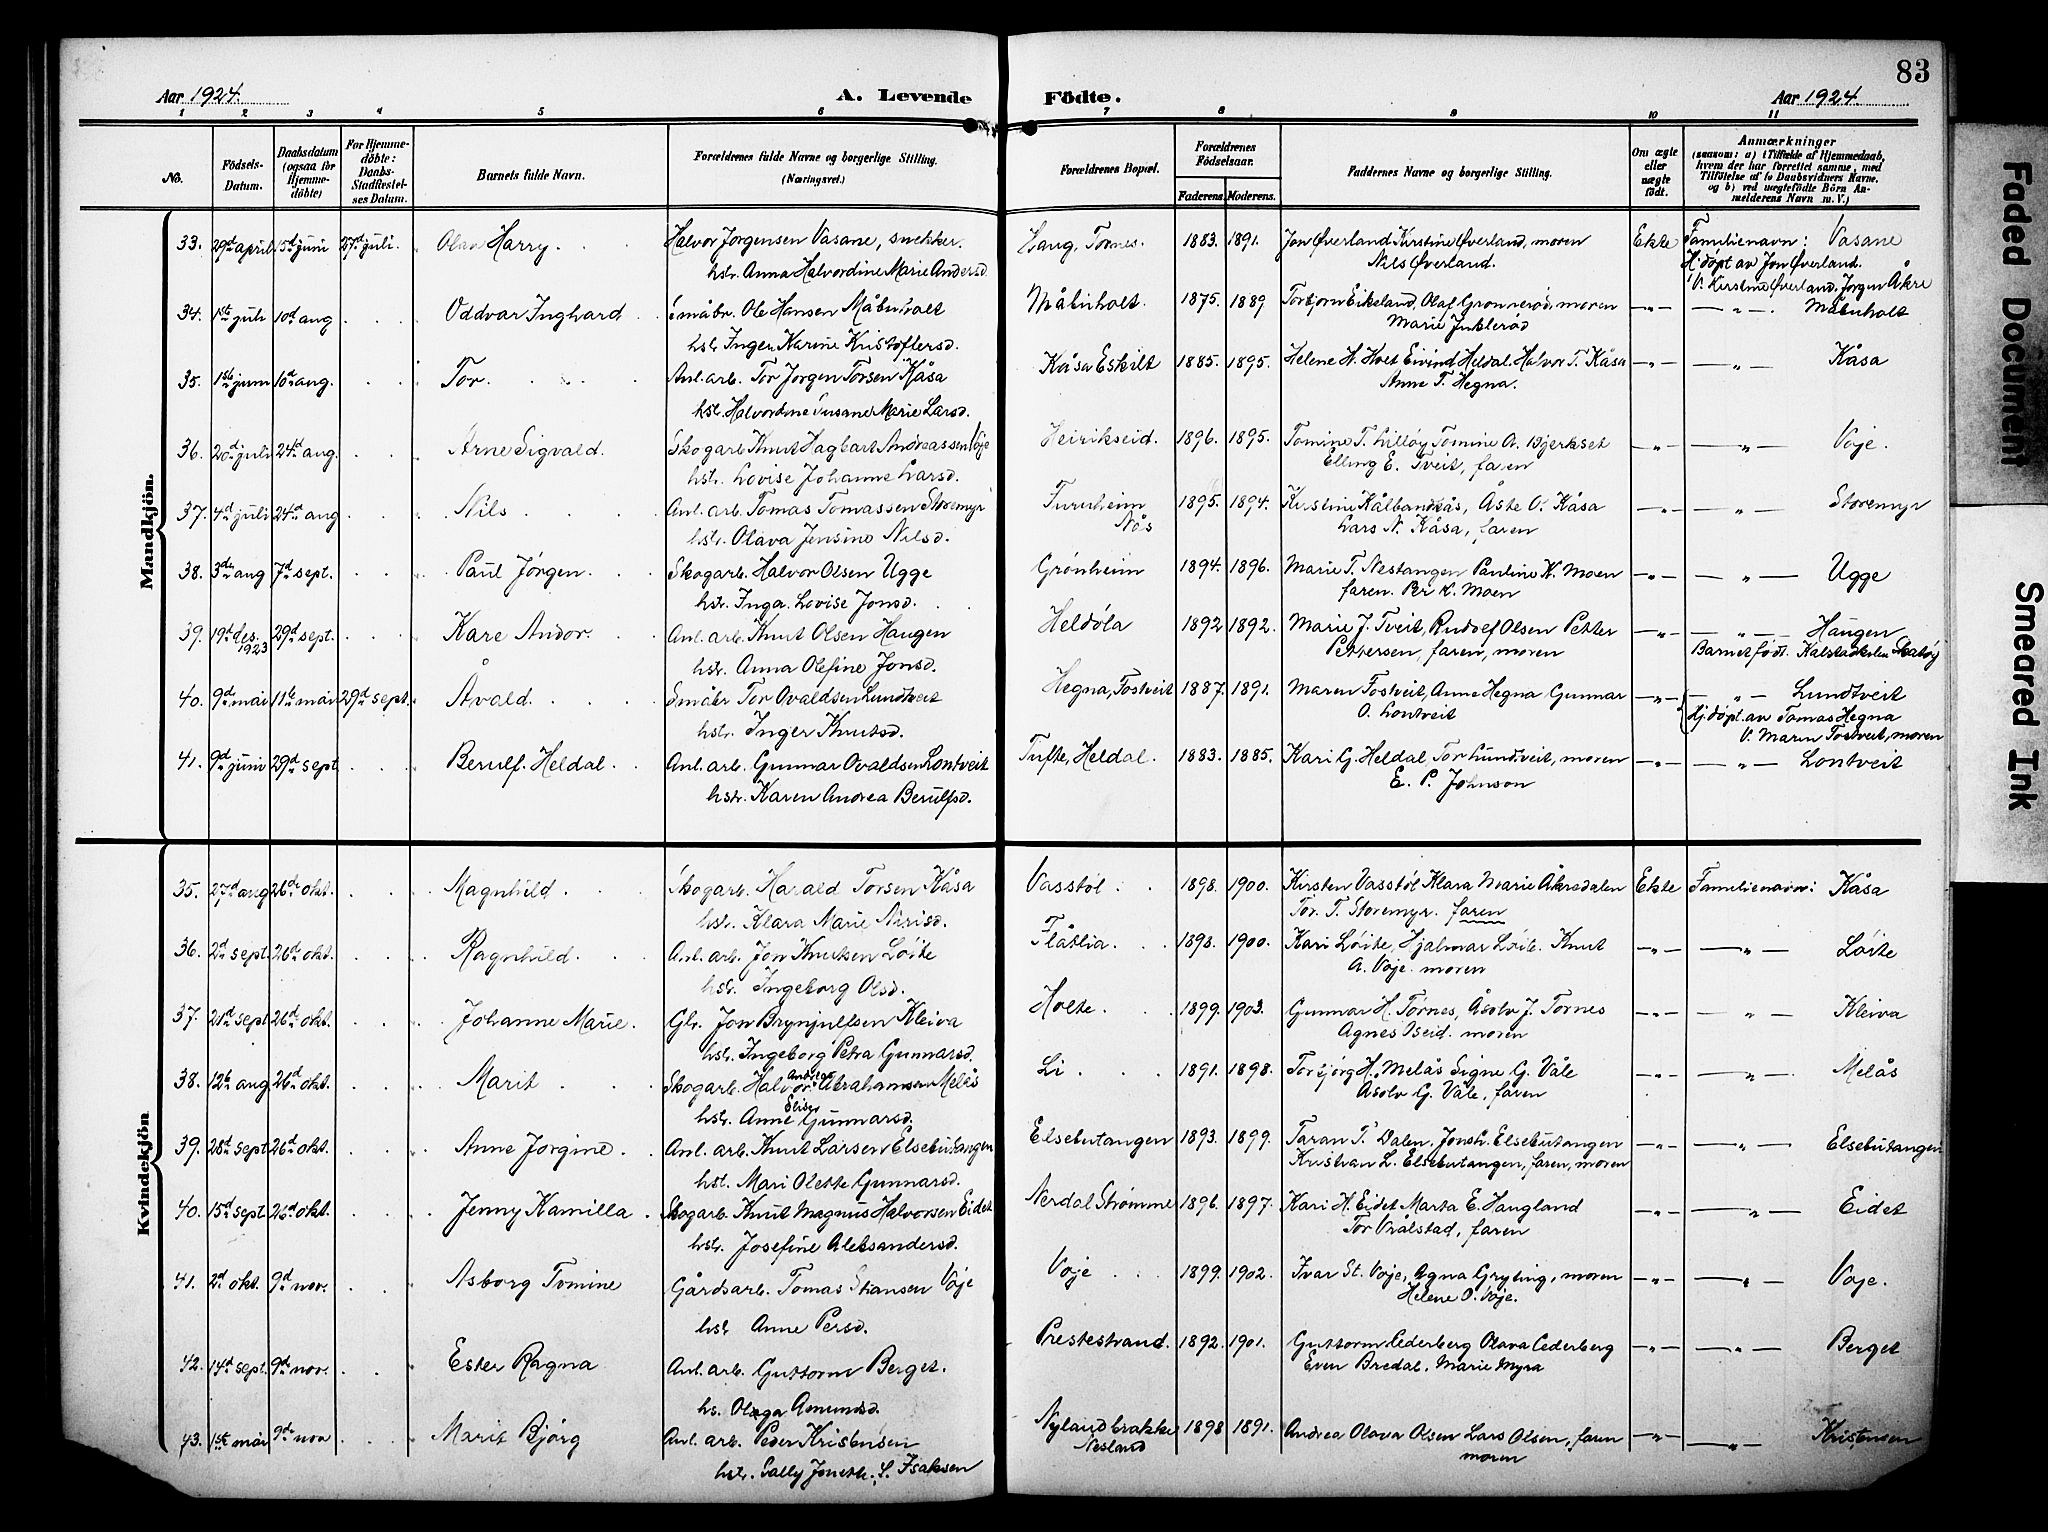 83
Aar 1924. A. Levende Födte. Aar 1924.
1 2 3 4 5 6 7 8 9 10 11
No. Födsels-Datum. Daabsdatum (ogsaa for Hjemmedöbte) For Hjemmedöbte: Daabs-Stadfæstelses Datum. Barnets fulde Navn. Forældrenes fulde Navne og borgerlige Stilling. (Næringsvei.) Forældrenes Bopæl. Forældrenes Födselsaar. Faderens. Moderens. Faddernes Navne og borgerlige Stilling. Om ægte eller uægte födt. Anmærkninger (saasom: a) i Tilfælde af Hjemmedaab, hvem der har forrettet samme, med Tilföielse af to Daabsvidners Navne, og b) ved uægtefödte Börn Anmelderens Navn m. V.)
Mandkjön.
33. 29d april 15d juni 27d juli. Olav Harry. Halvor Jørgensen Vasane, snekker. Haug, Tornes. 1883. 1891. Jon Øverland Kirstine Øverland, moren Ekte Familienavn: Vasane
hstr. Anna Halvordine Marie Andersd. Nils Øverland. Hj.døpt av Jon Øverland.
V. Kirstine Øverland, Jørgen Åkre
34. 1ste juli 10d aug Oddvar Inghard. Småbr. Ole Hansen Måbuholt Måbuholt. 1875. 1889 Torbjørn Eikeland, Olaf Grønnerød, moren —"— —"— Måbuholt
hstr Inger Karine Kristoffersd. Marie Inklerød
35. 1ste juni 10d aug. Tor. Anl. arb. Tor Jørgen Torsen Kåsa Kåsa Eskilt 1885. 1895. Helene H. Holt Eivind Heldal. Halvor T. Kåsa —"— —"— Kåsa
hstr. Halvordine Susane Marie Larsd. Anne T. Hegna.
36. 20d juli 24d aug. Arne Sigvald. Skogarb Knut Hagbart Andreassen Voje Heirikseid. 1896. 1895. Tomine T. Lilløy Tomine A. Bjerkset —"— —"— Voje.
hstr. Lovise Johanne Larsd. Elling E. Tveit, faren
37. 4d juli 24d aug Nils Anl. arb. Tomas Tomassen Storemyr Furuheim 1895. 1894. Kirstine Kålbandkås, Åste O. Kåsa —"— —"— Storemyr
hstr. Olava Jensine Nilsd. Nås Lars N. Kåsa, faren
38. 3die aug 7d sept. Paul Jørgen. Skogarb. Halvor Olsen Ugge Grønheim 1894. 1896. Marie T. Nestangen Pauline K. Moen —"— —"— Ugge
hstr. Inga Lovise Jonsd. faren. Per K. Moen
39. 19d des. 29d sept. Kåre Andor. Anl. arb. Knut Olsen Haugen Heldøla 1892 1892. Marie J. Tveit, Rudolf Olsen Petter —"— —"— Haugen
1923 hstr. Anna Olefine Jonsd. Pettersen, faren, moren Barnet født Kalstadkilen Skåtøy
40. 9d mai 11te mai 29d sept. Åvald. Småbr Tor Ovaldsen Lundtveit Hegna, Tostveit 1887. 1891. Maren Tostveit, Anne Hegna Gunnar —"— —"— Lundtveit
hstr. Inger Knutsd. O. Lontveit Hj.døpt. av Tomas Hegna
V. Maren Tostveit, moren
41. 9d juni 29d sept Berulf. Heldal. Anl. arb. Gunnar Ovaldsen Lontveit Tufte, Heldal. 1883. 1885. Kari G. Heldal, Tor Lundtveit, moren —"— —"— Lontveit
hstr. Karen Andrea Berulfsd. E. P. Johnson
Kvindekjön
35. 27d aug 26de okt. Magnhild. Skogarb. Harald Torsen Kåsa Vasstøl 1898. 1900. Kirsten Vasstøl Klara Marie Åkredalen Ekte Familienavn: Kåsa
hstr. Klara Marie Nirisd. Tor. T. Storemyr. faren
36. 2d sept. 26d okt. Ragnhild. Anl. arb. Jon Knutsen Løite Flåtlia. 1893. 1900. Kari Løite, Hjalmar Løite. Knut —"— —"— Løite
hstr. Ingeborg Olsd. A. Voje. moren
37. 21d sept 26d okt. Johanne Marie. Gbr. Jon Brynjulfsen Kleiva Holte. 1899. 1903. Gunnar H. Tørnes, Åsolv J. Tornes —"— —"— Kleiva
hstr. Ingeborg Petra Gunnarsd. Agnes Iseid. moren
38. 12te aug 26d okt. Marit Skogarb. Halvor Andreas Abrahamsen Melås Li. 1891. 1898. Torbjørg H. Melås Signe G. Våle —"— —"— Melås
hstr. Anne Elise Gunnarsd. Åsolv G. Våle, faren
39. 28d sept 26d okt. Anne Jørgine. Anl. arb. Knut Larsen Elsebutangen Elsebutangen 1893. 1899. Taran T. Dalen, Jonette Elsebutangen —"— —"— Elsebutangen
hst. Mari Olette Gunnarsd. Kristian L. Elsebutangen, faren, moren
40. 15d sept. 26d okt. Jenny Kamilla. Skogarb Knut Magnus Halvorsen Eidet Nerdal Strømme 1896. 1897. Kari H. Eidet Marta E. Haugland —"— —"— Eidet
hstr. Josefine Aleksandersd. Tor Vrålstad, faren
41. 2d okt. 9d nov. Asborg Tomine Gårdsarb. Tomas Stiansen Voje Voje 1899. 1902. Ivar St. Voje, Agna Gryting, moren —"— —"— Voje.
hstr Anne Persd. Helene O. Voje.
42. 14d sept. 9de nov. Ester Ragna Anl. arb. Guttorm Berget. Prestestrand. 1892. 1901. Guttorm Cederberg Olava Cederberg —"— —"— Berget
hs. Olaga Amundsd. Even Bredal, Marie Myra
43. 1ste mai 9de nov Marit Bjørg Anl. arb. Peder Kristensen Nylandbrakke 1898 1891. Andrea Olava Olsen Lars Olsen, faren —"— —"— Kristensen
hstr. Sally Jonette, S. Isaksen Nesland moren
Faded Document
Smeared Ink